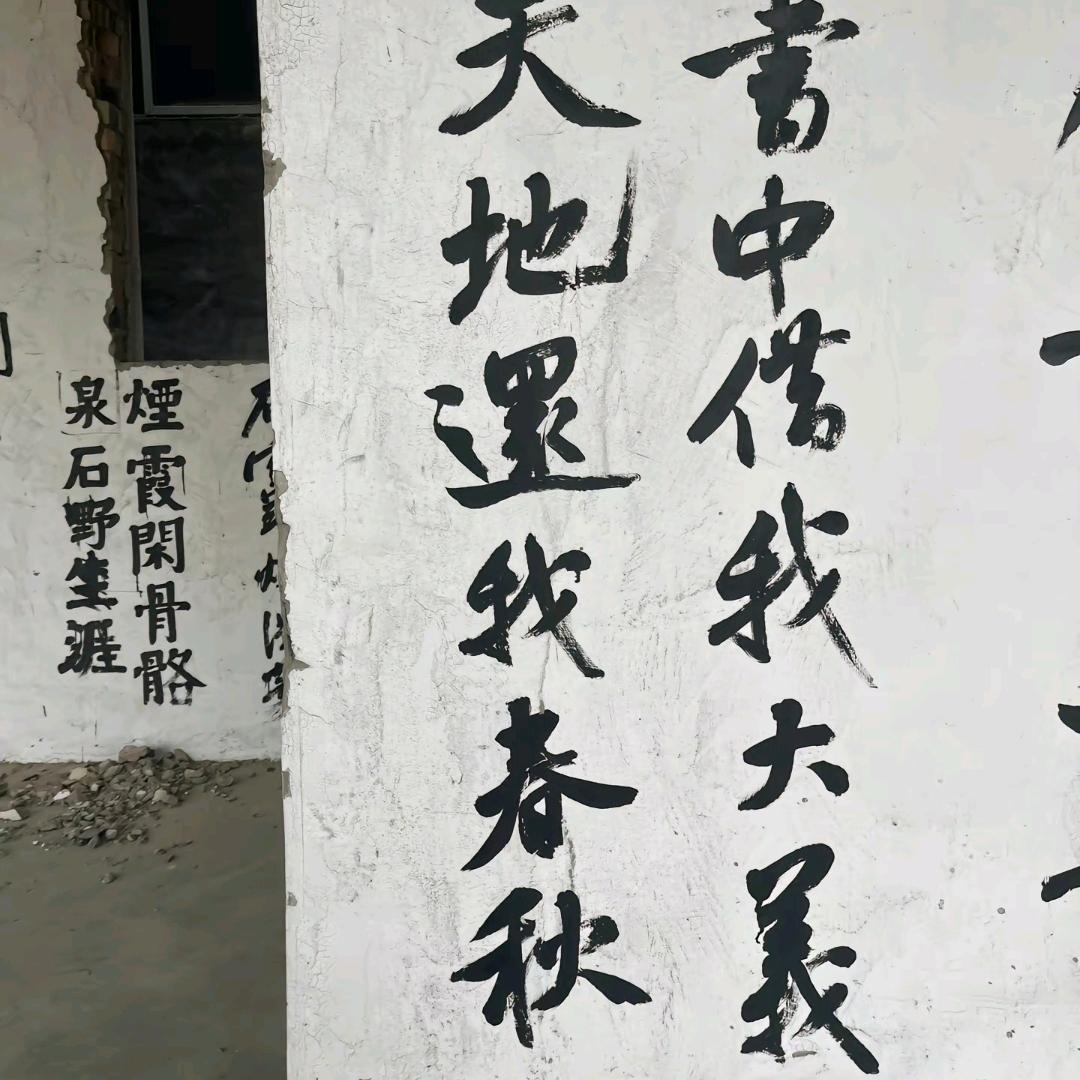 書中借我大義
天地還我春秋
煙霞閑骨骼
泉石野生涯